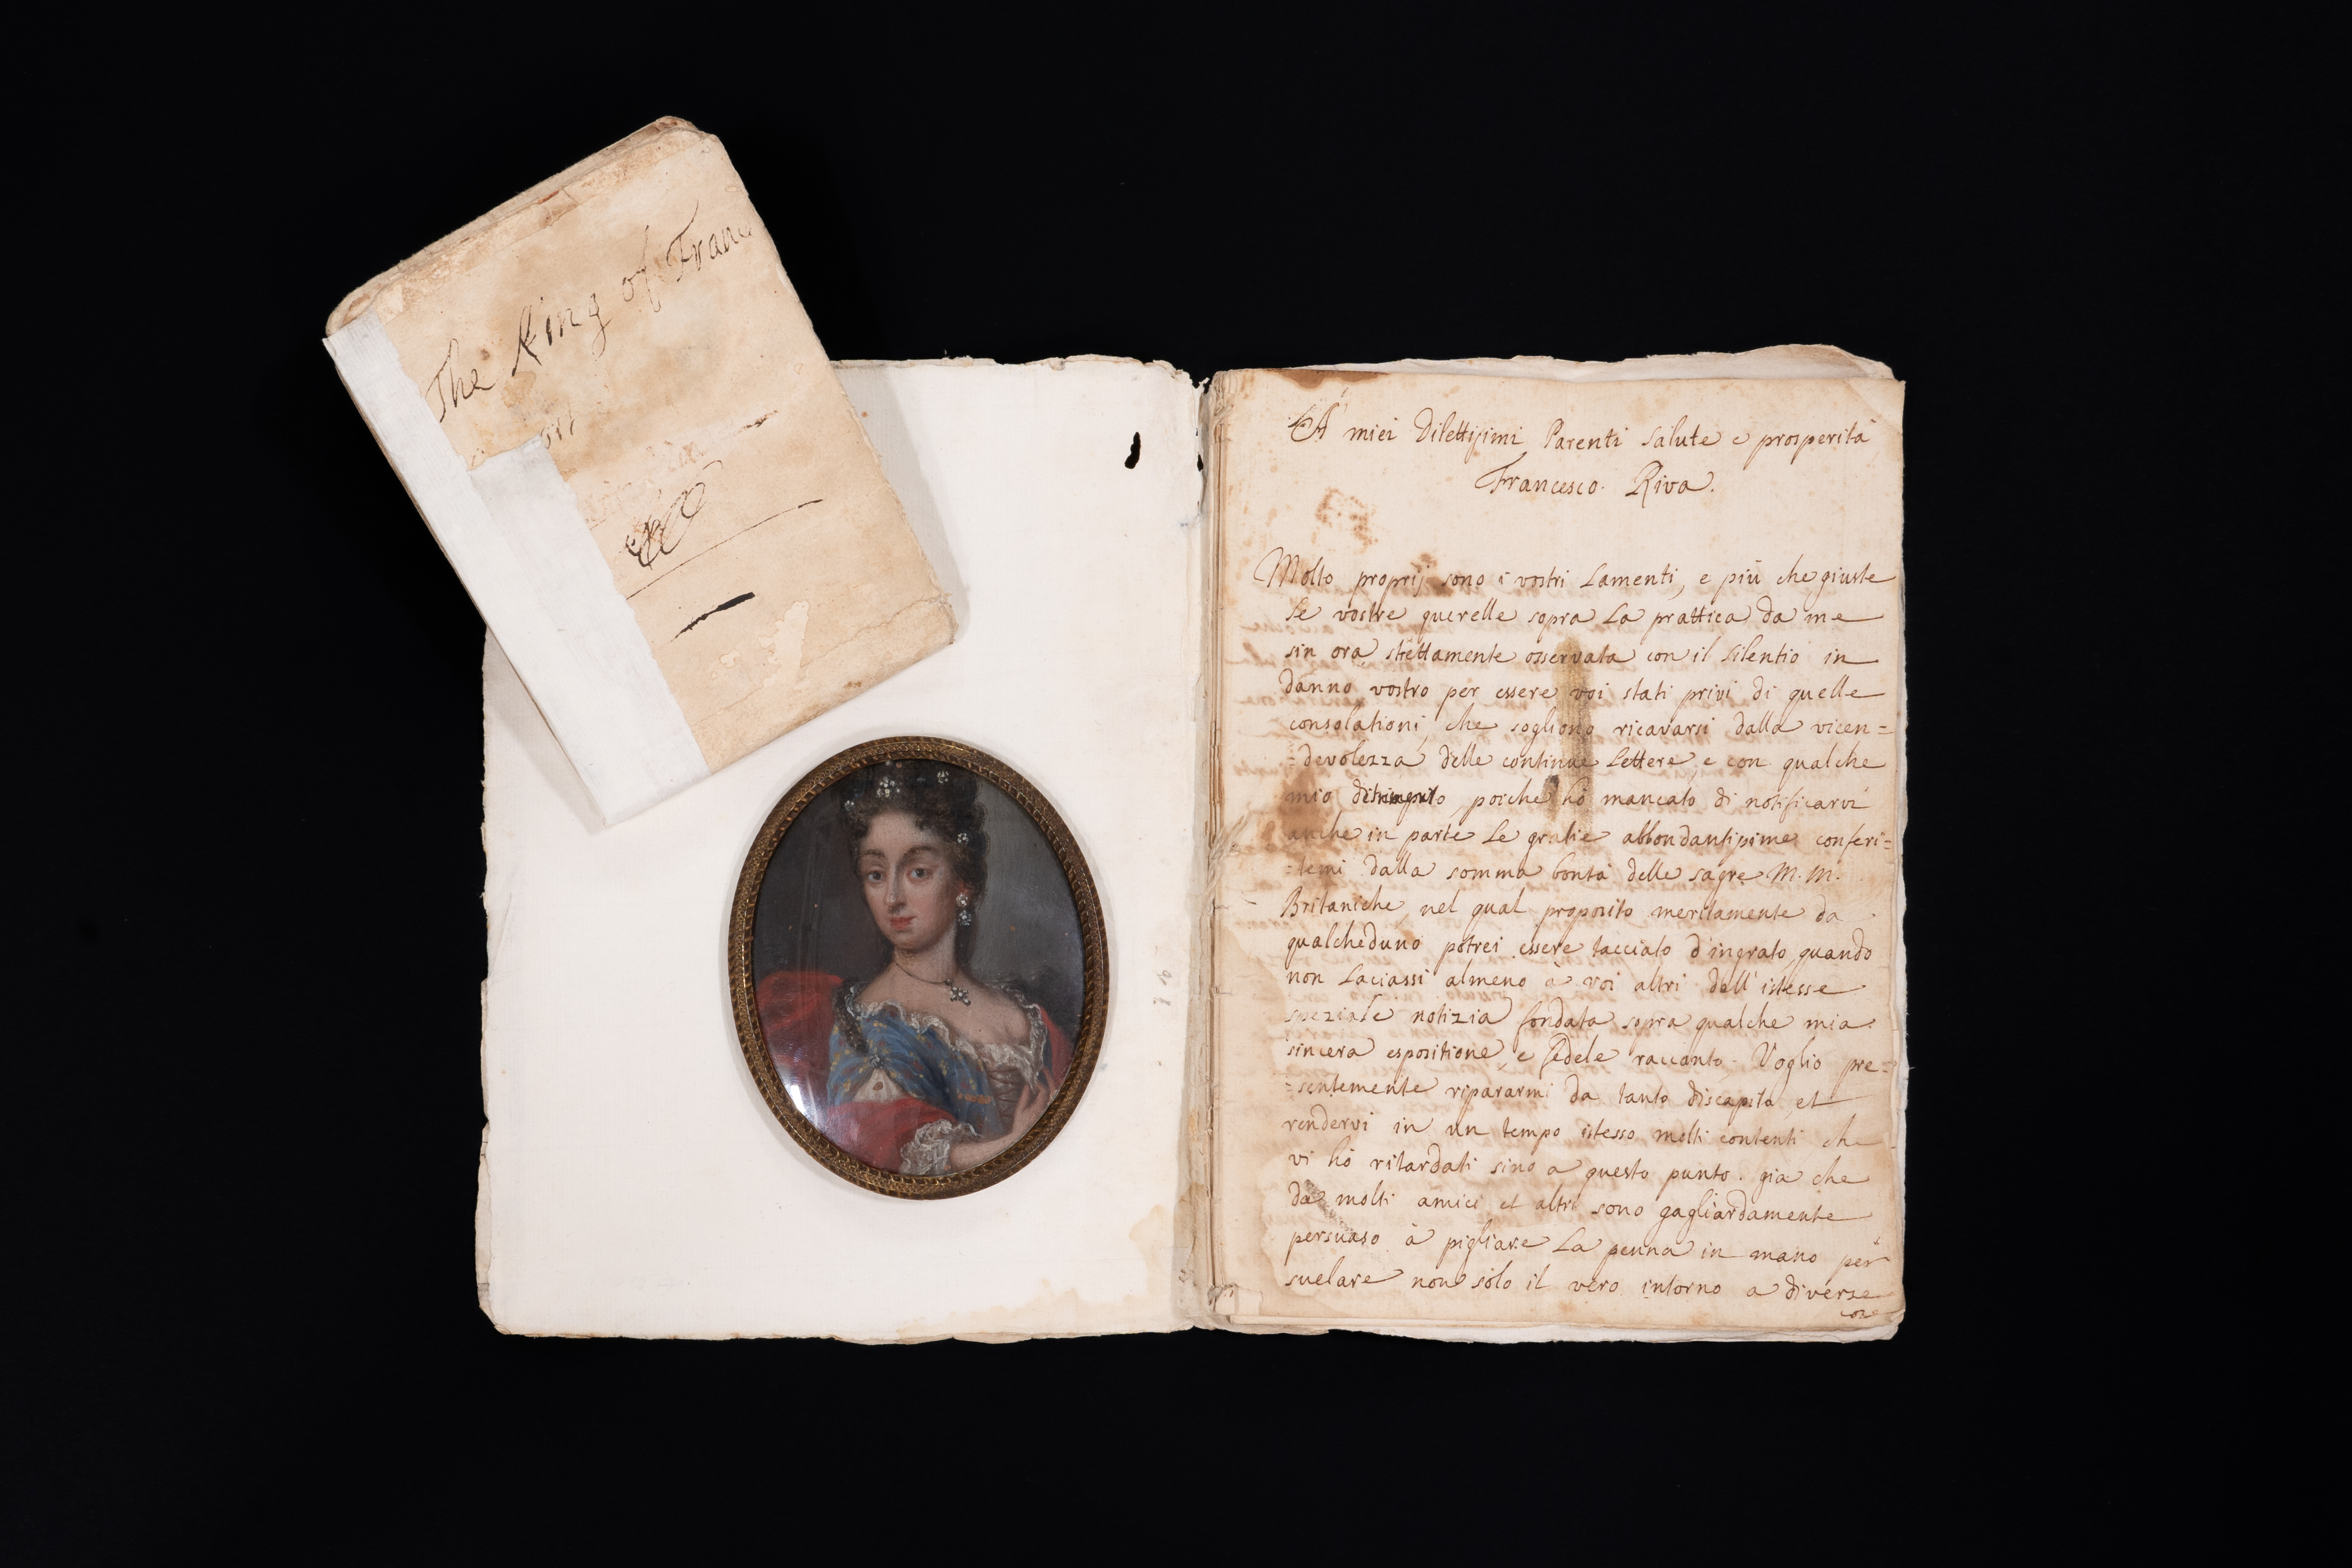 The King of Franc
A' miei Dilettissimi Parenti salute e prosperità
Francesco Riva.
Molto proprij sono i vostri Lamenti, e più che giuste
le vostre querelle sopra La prattica da me
sin ora strettamente osservata con il silentio in
danno vostro per essere voi stati privi di quelle
consolationi, che sogliono ricavarsi dalla vicen=
=devolezza delle continue Lettere, e con qualche
mio poiche hò mancato di notificarvi
anche in parte le gratie abbondantissime conferi=
=temi dalla somma bontà delle sagre M. M.
Britaniche, nel qual proposito meritamente da
qualcheduno potrei essere tacciato d'ingrato quando
non Laciassi almeno à voi altri dell'istesse
speziale notizia fondata sopra qualche mia
sincera espositione, e fedele raccanto. Voglio pre=
=sentemente ripararmi da tanto discapito, et
rendervi in un tempo istesso molti contenti che
vi hò ritardati sino a questo punto. gia che
da molti amici et altri sono gagliardamente
persuaso à pigliare La penna in mano per
suelare non solo il vero intorno a diverse
cose